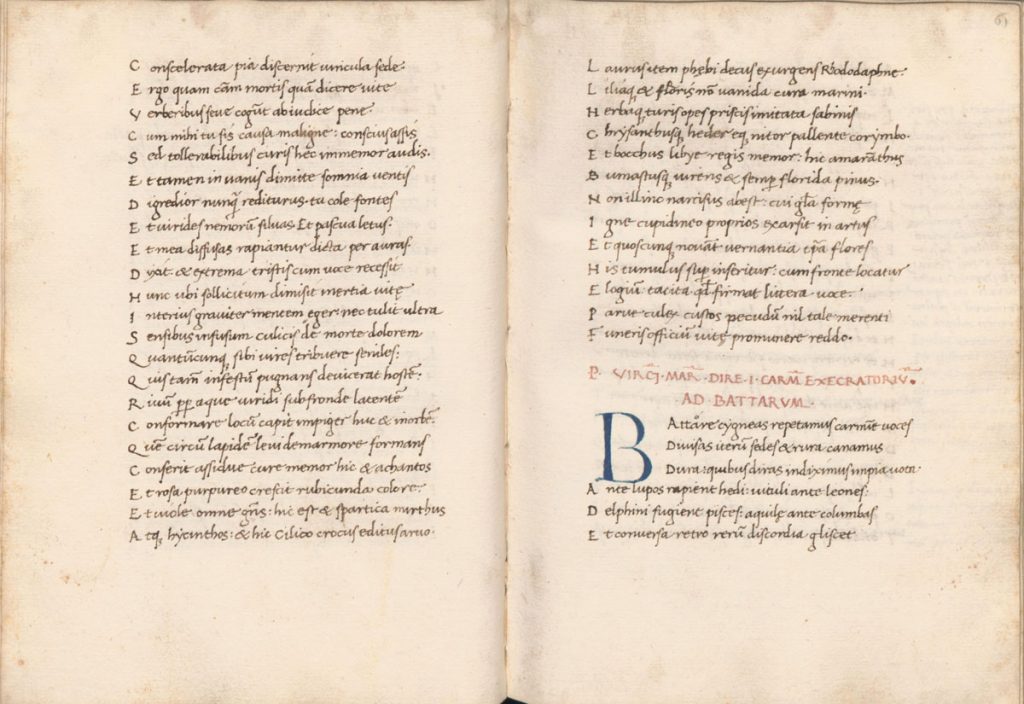 Conscelerata pia discernit vincula sede.
Ergo quam cām mortis quā dicere vite
Verberibus seve cogūt ab iudice pene.
Cum mihi tu sis causa maligne: conscius assis
Sed tollerabilibus curis hec immemor audis.
Et tamen in vanis dimitte somnia ventis
Digredior nunꝙ rediturus. tu cole fontes
Et virides nemorū silvas. Et pascua letus.
Et mea diffusas rapiantur dicta per auras.
Dixit. & extrema tristis cum voce recessit
Hunc ubi sollicitum dimisit inertia vitę
Interius graviter mentem eger: nec tulit ultra
Sensibus infusum culicis de morte dolorem
Quantūcunꝙ sibi vires tribuere seniles:
Quis tam̄ infestū pugnans devicerat hostē.
Rivū ꝓpr aque viridi sub fronde latentē
Conformare locū capit impiger huc & in orbē.
Quē circū lapidē levi de marmore formans
Conserit assidue cure memor hic & achantos
Et rosa purpureo crescit rubicunda colore.
Et viole omne gn̄s: hic est & spartica mirthus
Atꝙ hycinthos: & hic Cilico crocus editus arvo.
61
Laurus item phębi decus exurgens Rhododaphne.
Liliaꝙ & floris nō vanida cura marini.
Herbaꝙ turis opes priscis imitata sabinis
Chrysanthusꝙ hederęꝙ nitor pallente corymbo.
Et bocchus libye regis memor: hic amarāthus
Bumastusꝙ virens & semꝑ florida pinus.
Non illinc narcisus abest: cui gl̄a formę
Igne cupidineo proprios exarsit in artus
Et quoscunꝙ novāt vernantia tꝑa flores
His tumulus suꝑ inseritur: cum fronte locatur
Elogiū tacita qđ firmat littera voce.
Parve culex custos pecudū nil tale merenti
Funeris officiū vitę pro munere reddo.
P. VIRG̅I. MAR̅. DIRE. I. CARM̅ EXECRATORIV̅.
AD BATTARVM.
BAttare cygneas repetamus carmīe voces
Divisas iterū sedes & rura canamus
Dura: quibus diras indiximus impia vota.
Ante lupos rapient hedi: vituli ante leones:
Delphini fugient pisces: aquilę ante columbas
Et conversa retro rerū discordia gliscet